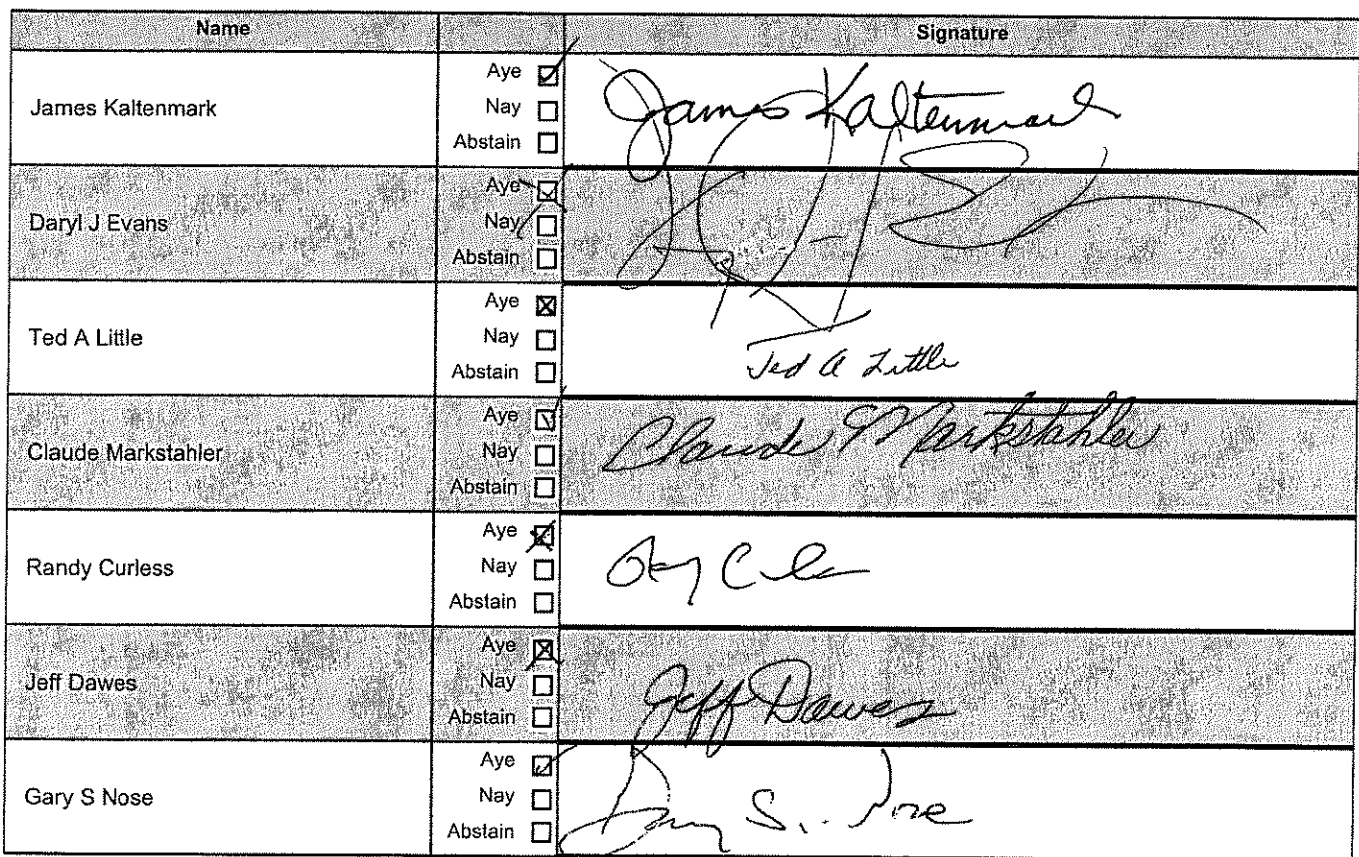 Name Signature
James Kaltenmark
Aye ☑
Nay ☐
Abstain ☐
James Kaltenmark
Daryl J Evans
Aye ☒
Nay ☐
Abstain ☐
Ted A Little
Aye ☒
Nay ☐
Abstain ☐
Ted A Little
Claude Markstahler
Aye ☑
Nay ☐
Abstain ☐
Claude Markstahler
Randy Curless
Aye ☒
Nay ☐
Abstain ☐
Jeff Dawes
Aye ☒
Nay ☐
Abstain ☐
Jeff Dawes
Gary S Nose
Aye ☑
Nay ☐
Abstain ☐
Gary S. Nose